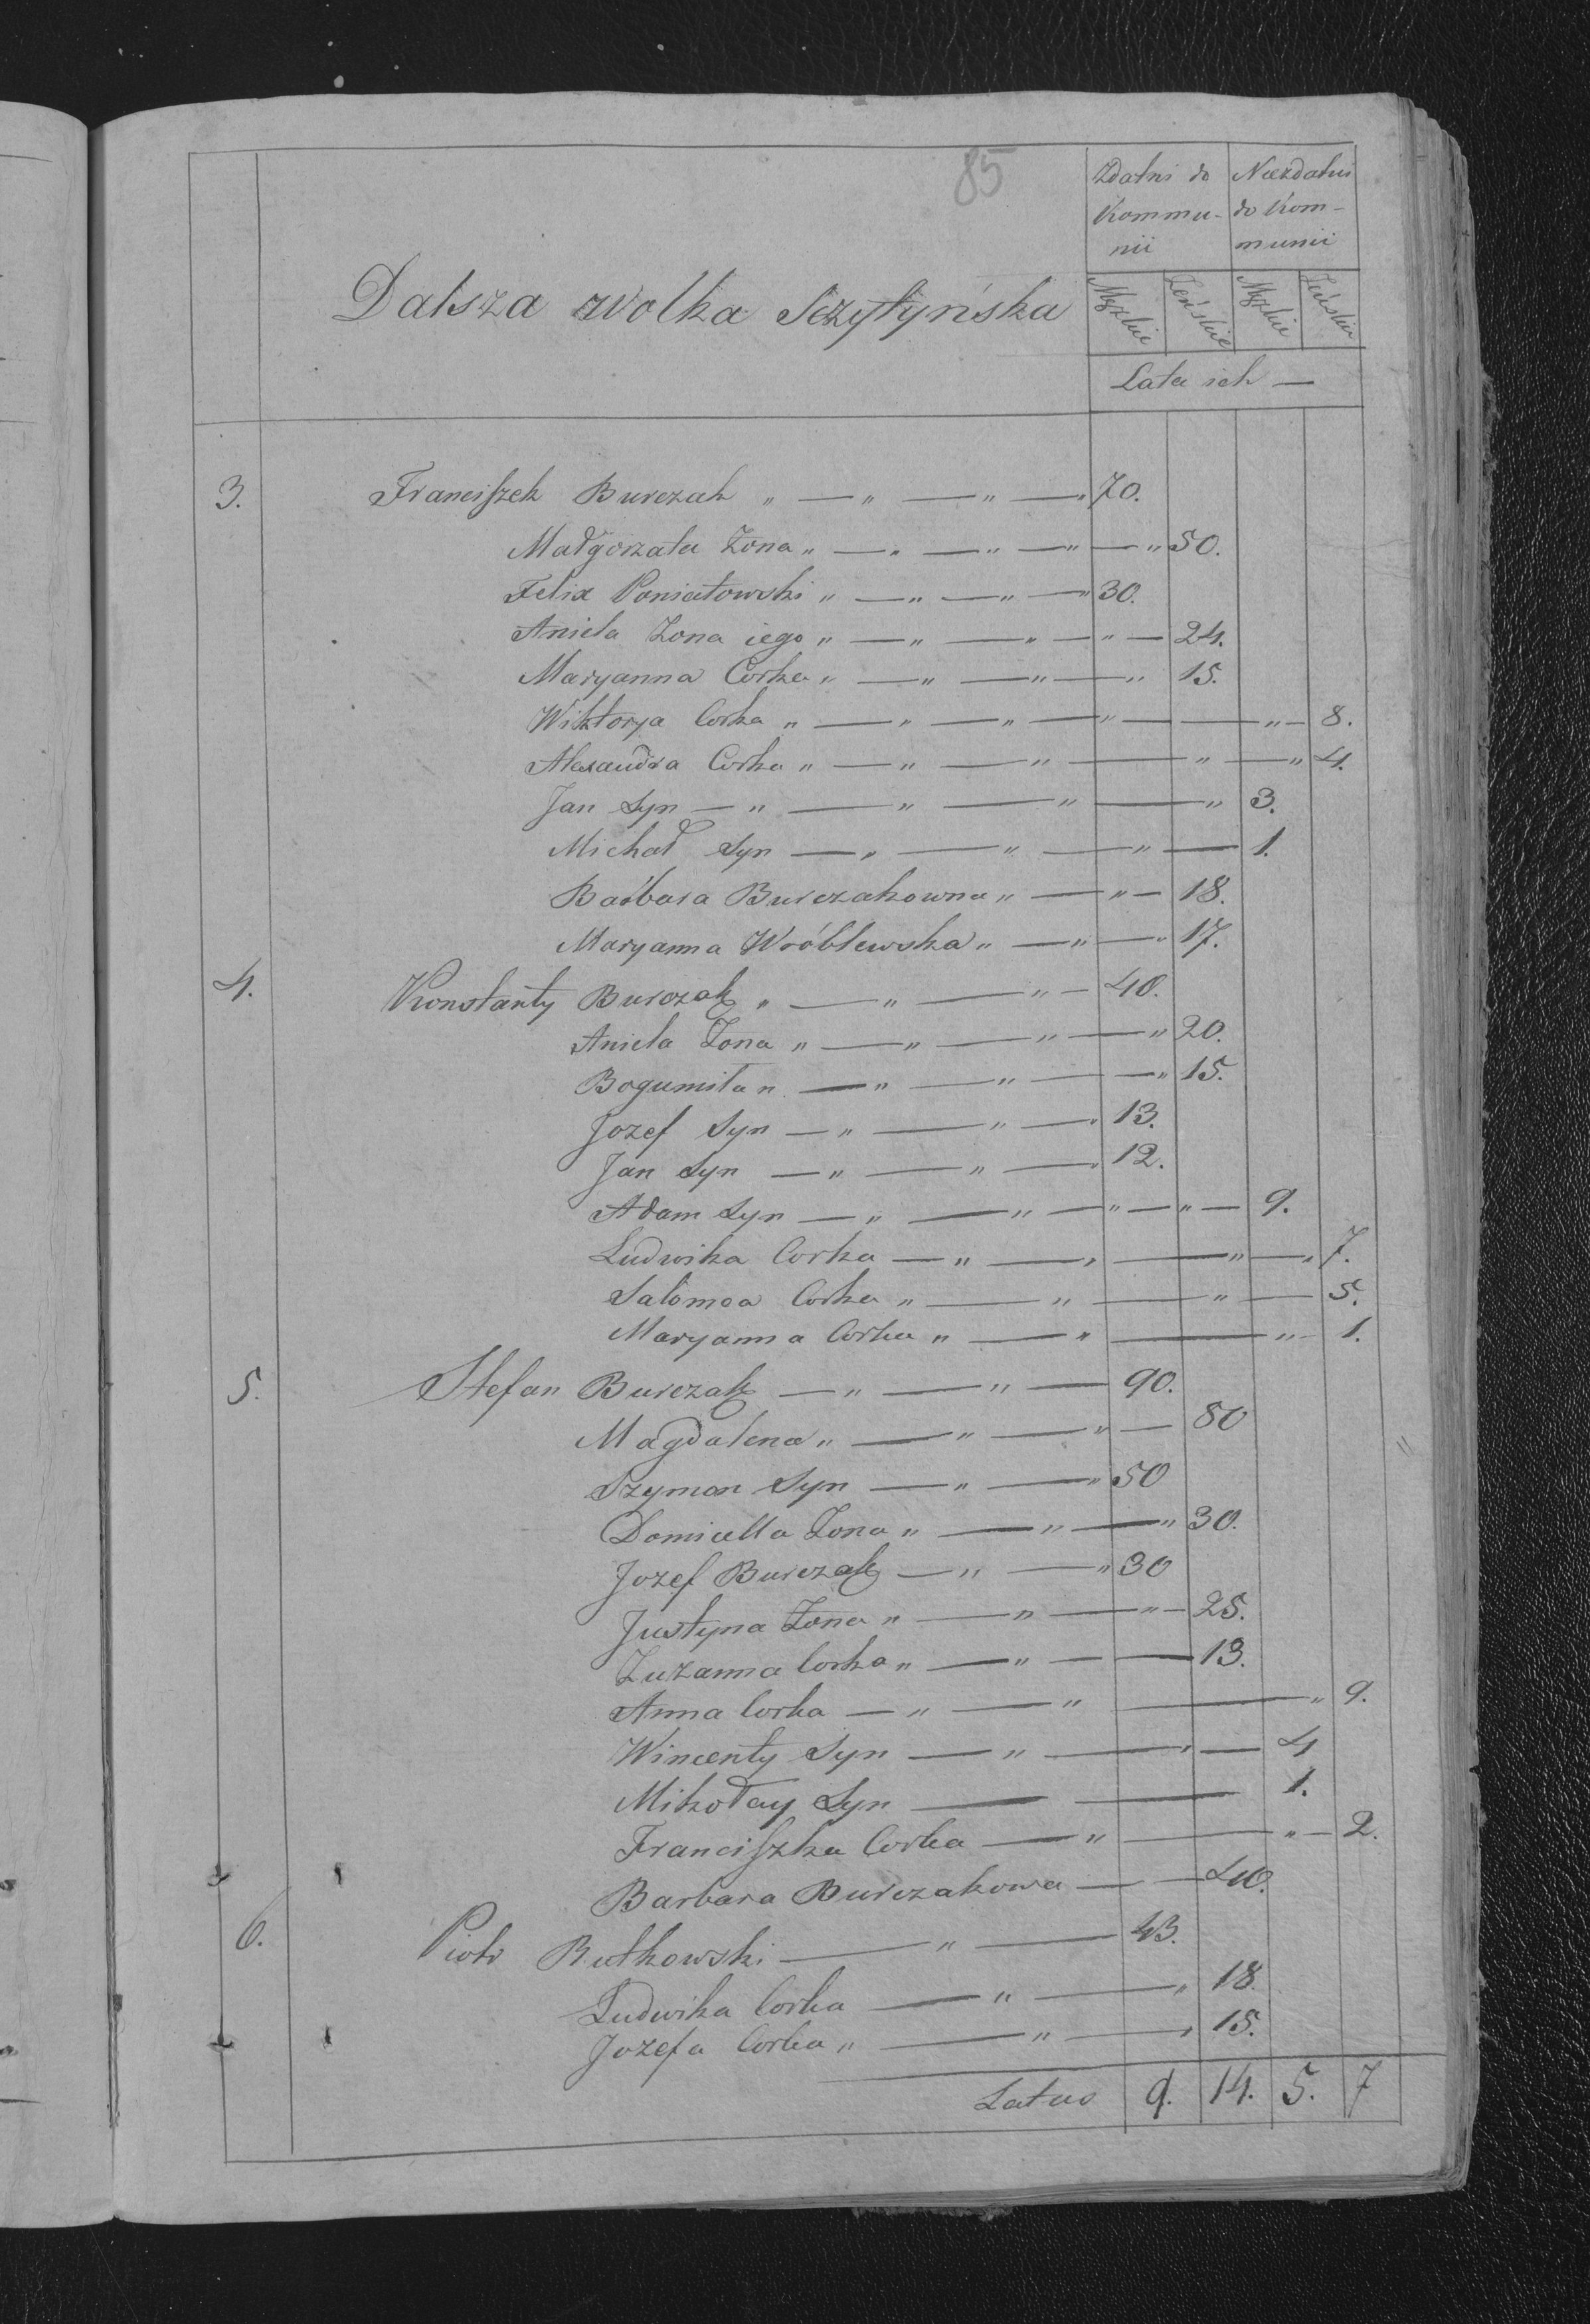 85
Zdatni do Kommu-nii
Niezdatni do Kom-munii
Dalsza Wolka Sczytyńska
Męzkie Żeńskie Męzkie Żeńskie
Lata ich —
3. Franciszek Burczak " — " — " — " 70.
Małgorzata Zona " — " — " — " — " 50.
Felix Poniatowski " — " — " — " 30.
Aniela Zona iego " — " — " — " — 24.
Maryanna Corka " — " — " — " 15.
Wiktorya Corka " — " — " — " — — " — 8.
Alexandra Corka " — " — " — " — " 4.
Jan Syn — " — " — " — " 3.
Michał Syn — " — " — " — 1.
Barbara Burczakowna " — " — 18.
Maryanna Wróblewska " — " — " 17.
4. Konstanty Burczak " — " — " — 40.
Aniela Zona " — " — " — " 20.
Bogumiła " — " — " — — " 15.
Jozef Syn — " — " — " 13.
Jan Syn — " — " — " 12.
Adam Syn — " — " — " — " — 9.
Ludwika Corka — " — " — " — " 7.
Salomea Corka " — " — " — 5.
Maryanna Corka " — " — " — 1.
5. Stefan Burczak — " — " — 90.
Magdalena " — " — " — 80
Szymon Syn — " — " 50
Domicella Zona " — " — " 30.
Jozef Burczak — " — " 30
Justyna Zona " — " — " — 25.
Zuzanna Corka " — " — — 13.
Anna Corka — " — " — " 9.
Wincenty Syn — " — " — 4
Mikołay Syn — — 1.
Franciszka Corka — " — " — 2.
Barbara Burczakowa — — 40.
6. Piotr Rutkowski — " — 43.
Ludwika Corka — " — " 18.
Jozefa Corka " — " — " 15.
Latus 9. 14. 5. 7